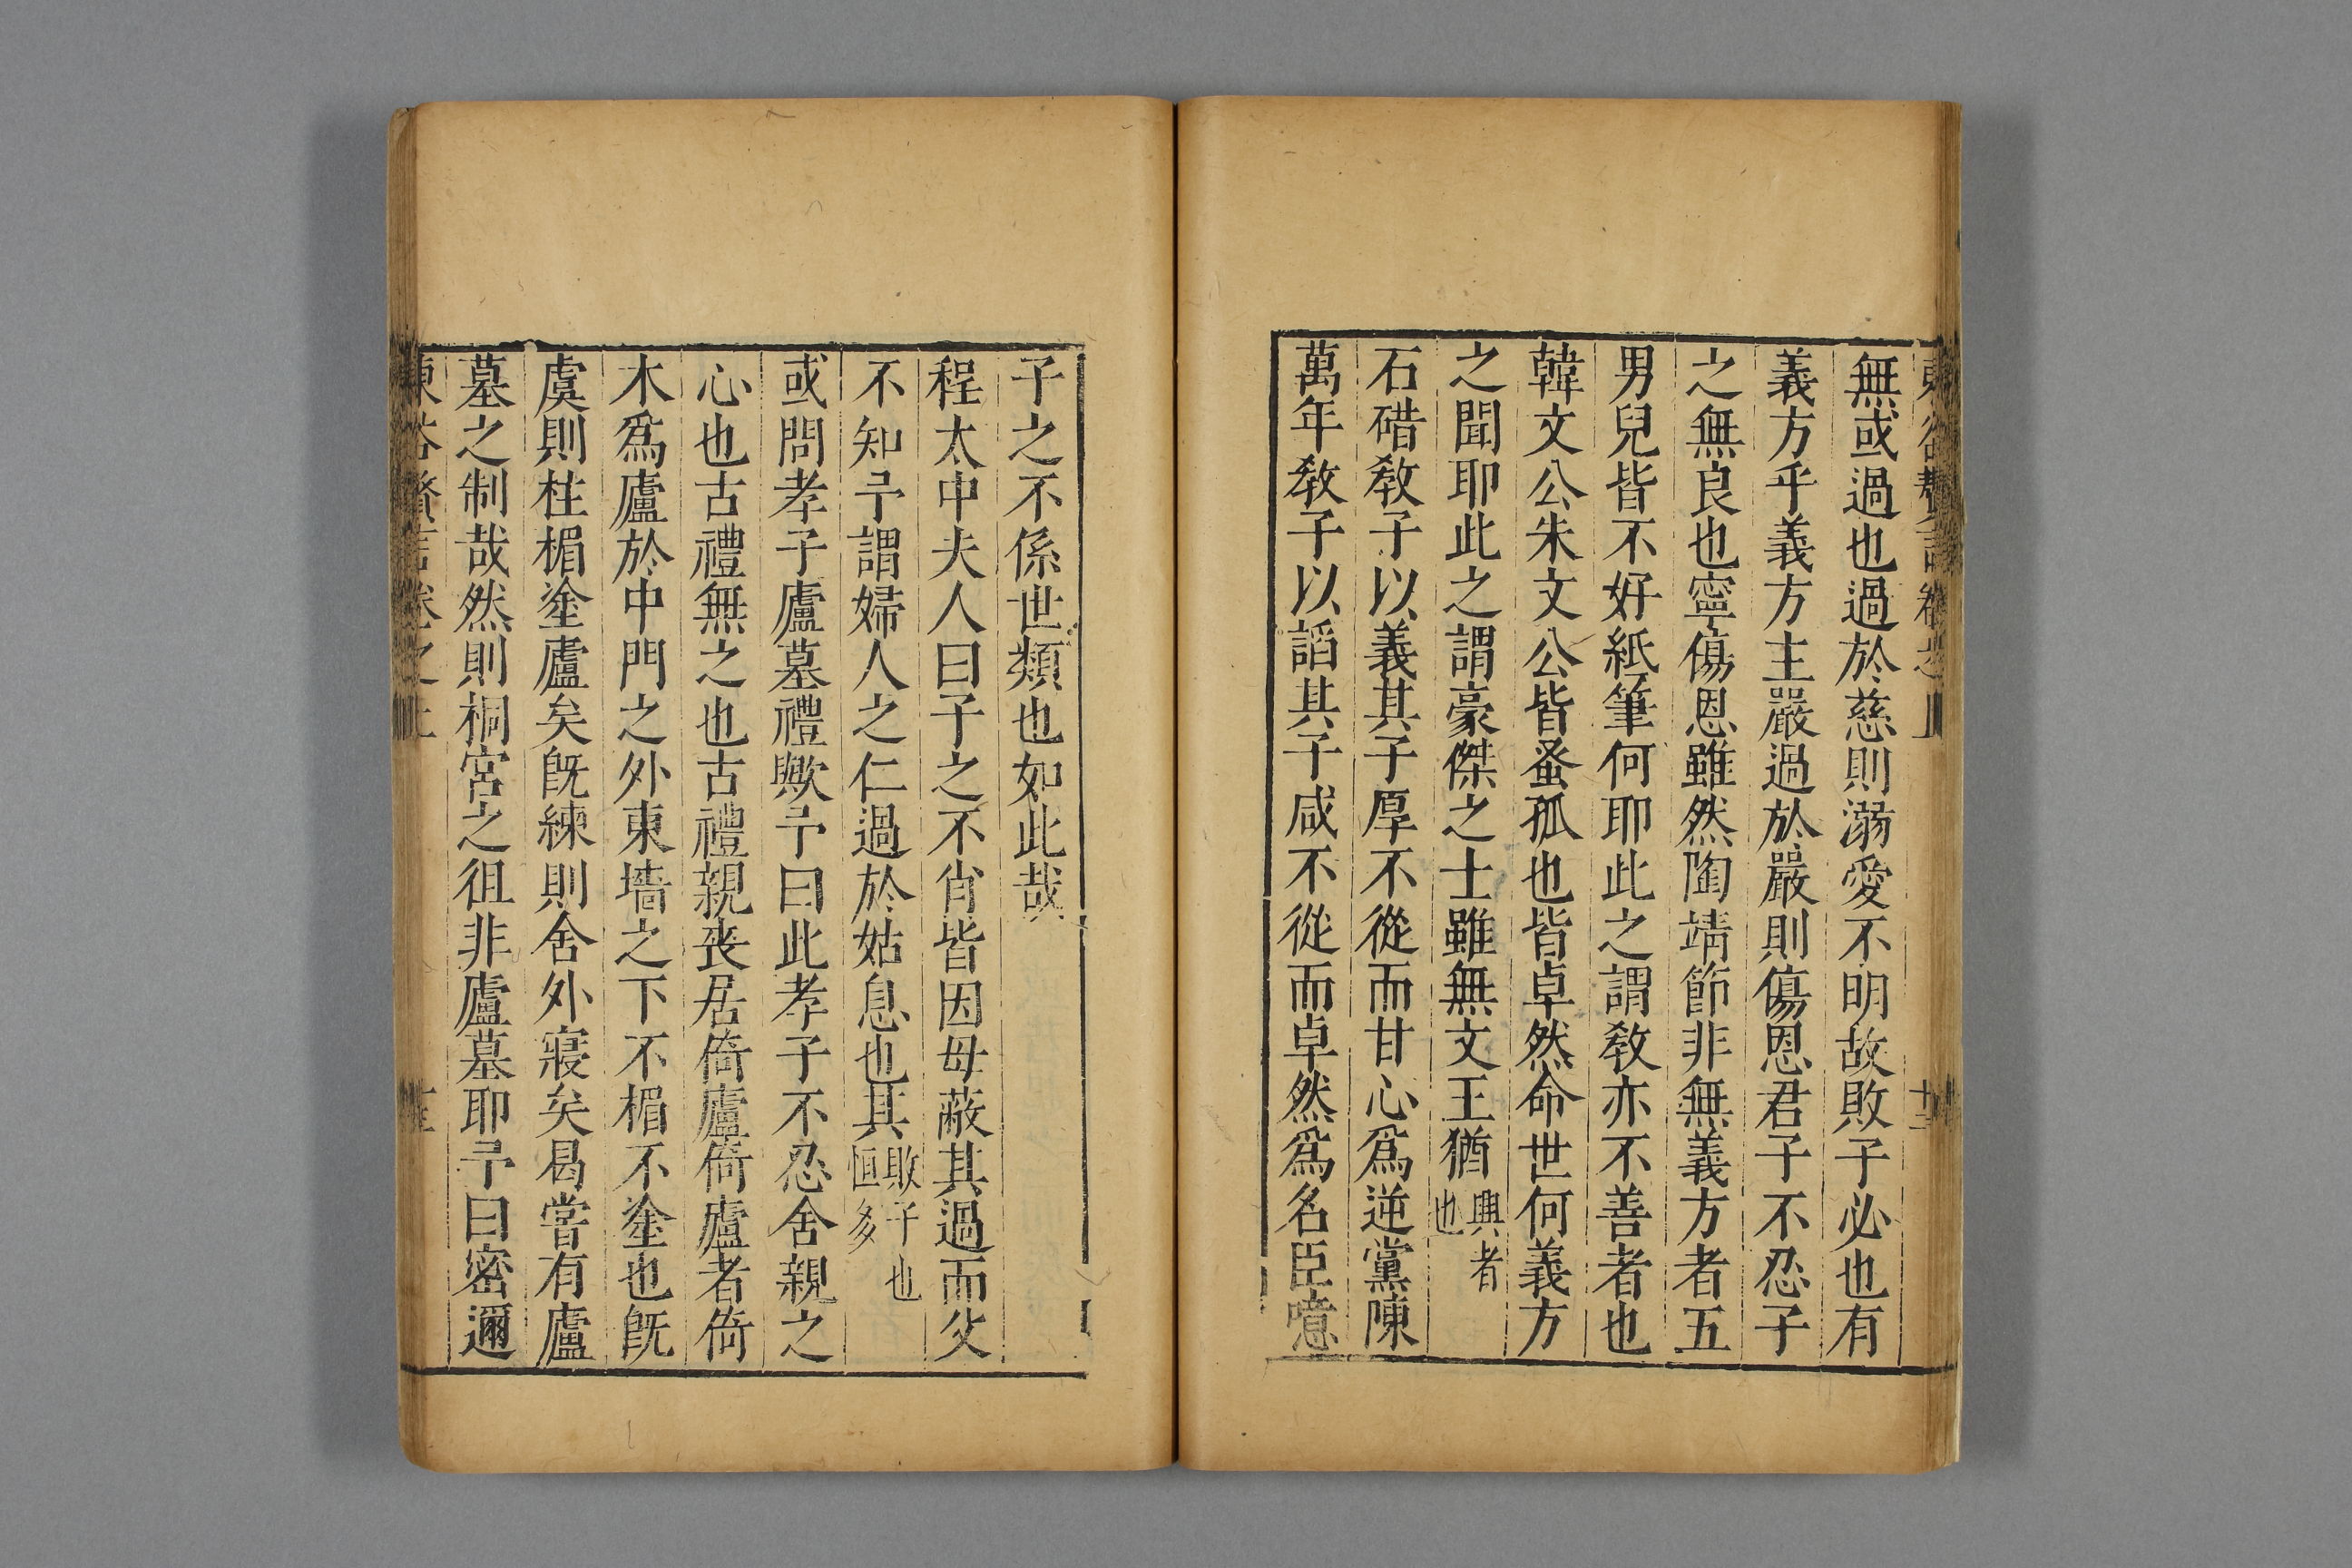 無或過也過於慈則溺愛不明故敗子必也有
義方乎義方主嚴過於嚴則傷恩君子不忍子
之無良也寧傷恩雖然陶靖節非無義方者五
男兒皆不好紙筆何耶此之謂教亦不善者也
韓文公朱文公皆蚤孤也皆卓然命世何義方
之聞耶此之謂豪傑之士雖無文王猶興者也
石碏教子以義其子厚不從而甘心爲逆黨陳
萬年教子以謟其子咸不從而卓然爲名臣噫
子之不係世類也如此哉
程太中夫人曰子之不肖皆因母蔽其過而父
不知予謂婦人之仁過於姑息也其敗子也恒多
或問孝子廬墓禮歟予曰此孝子不忍舍親之
心也古禮無之也古禮親喪居倚廬倚廬者倚
木爲廬於中門之外東墻之下不楣不塗也旣
虞則柱楣塗廬矣旣練則舍外寢矣曷嘗有廬
墓之制哉然則桐宮之徂非廬墓耶予曰密邇
東谷贅言卷之上